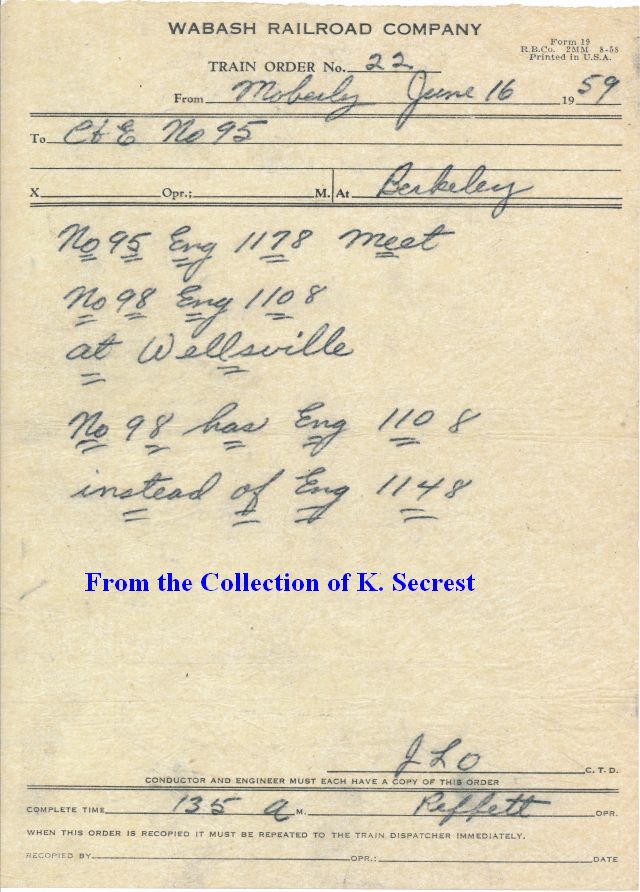 WABASH RAILROAD COMPANY
Form 19
R.B.Co. 2MM 8-58
Printed in U.S.A.
TRAIN ORDER No. 22
From Moberly June 16 1959
To C&E No 95
X. Opr.; M. At Berkeley
No 95 Eng 1178 meet
No 98 Eng 1108
at Wellsville
No 98 has Eng 1108
instead of Eng 1148
From the Collection of K. Secrest
JLO C.T.D.
CONDUCTOR AND ENGINEER MUST EACH HAVE A COPY OF THIS ORDER
COMPLETE TIME 135 A M. Reffett OPR.
WHEN THIS ORDER IS RECOPIED IT MUST BE REPEATED TO THE TRAIN DISPATCHER IMMEDIATELY.
RECOPIED BY OPR.: DATE